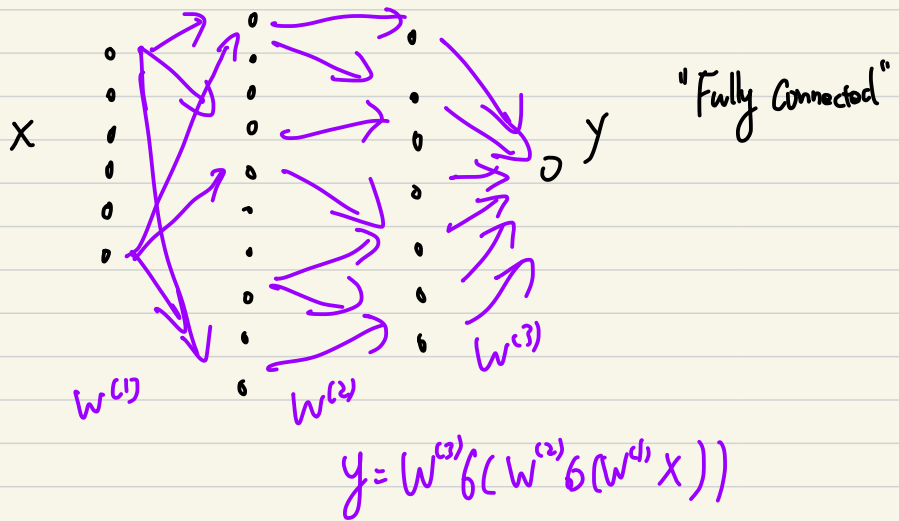 X
Y
"Fully Connected"
W^(1)
W^(2)
W^(3)
y = W^(3) б( W^(2) б( W^(1) X ))